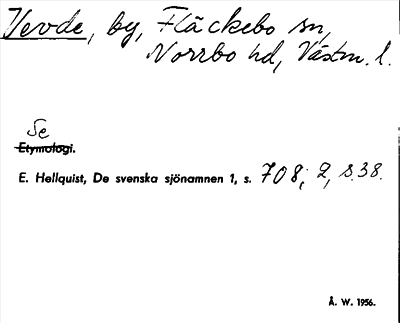 Vevde, by, Fläckebo sn,
Norrbo hd, Västm. l.
Se
Etymologi.
E. Hellquist, De svenska sjönamnen 1, s. 708; 2, s.38.
Å. W. 1956.